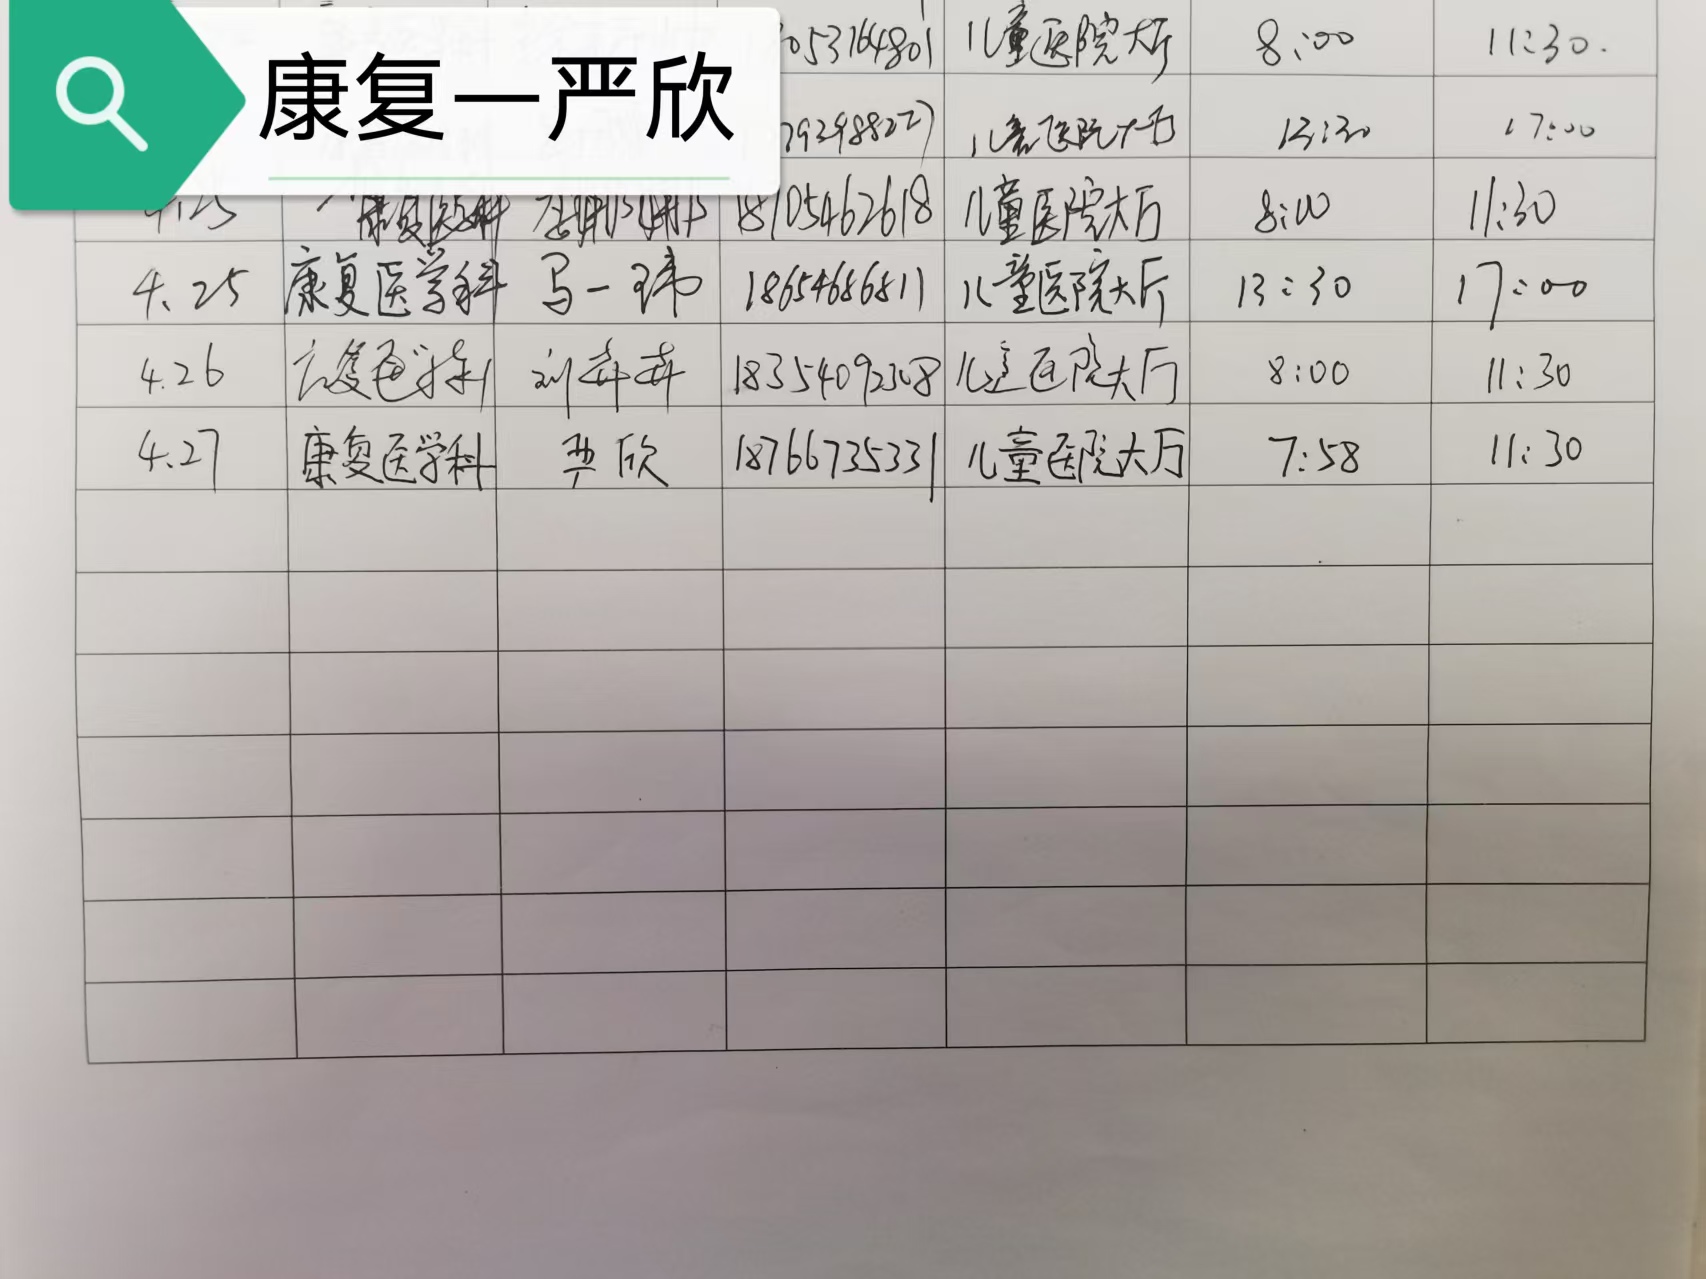 康复一严欣
053164801 儿童医院大厅 8:00 11:30.
儿童医院大厅 13:30 17:00
18105462618 儿童医院大厅 8:00 11:30
4.25 康复医学科 马一玮 18654686811 儿童医院大厅 13:30 17:00
4.26 康复医学科 刘卉卉 18354092308 儿童医院大厅 8:00 11:30
4.27 康复医学科 严欣 18766735331 儿童医院大厅 7:58 11:30